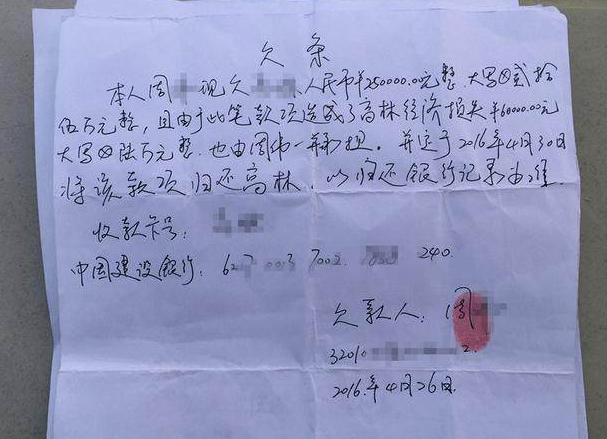 欠条
本人周 现欠 人民币¥250000.00元整,大写⊗贰拾
伍万元整,且由于此笔款项造成了高林经济损失¥60000.00元
大写⊗陆万元整,也由周 一并承担。并还于2016年4月30日
将该款项归还高林,以归还银行记录为准
收款卡号:
中国建设银行: 7002 240
欠款人:周
3201
2016年4月26日